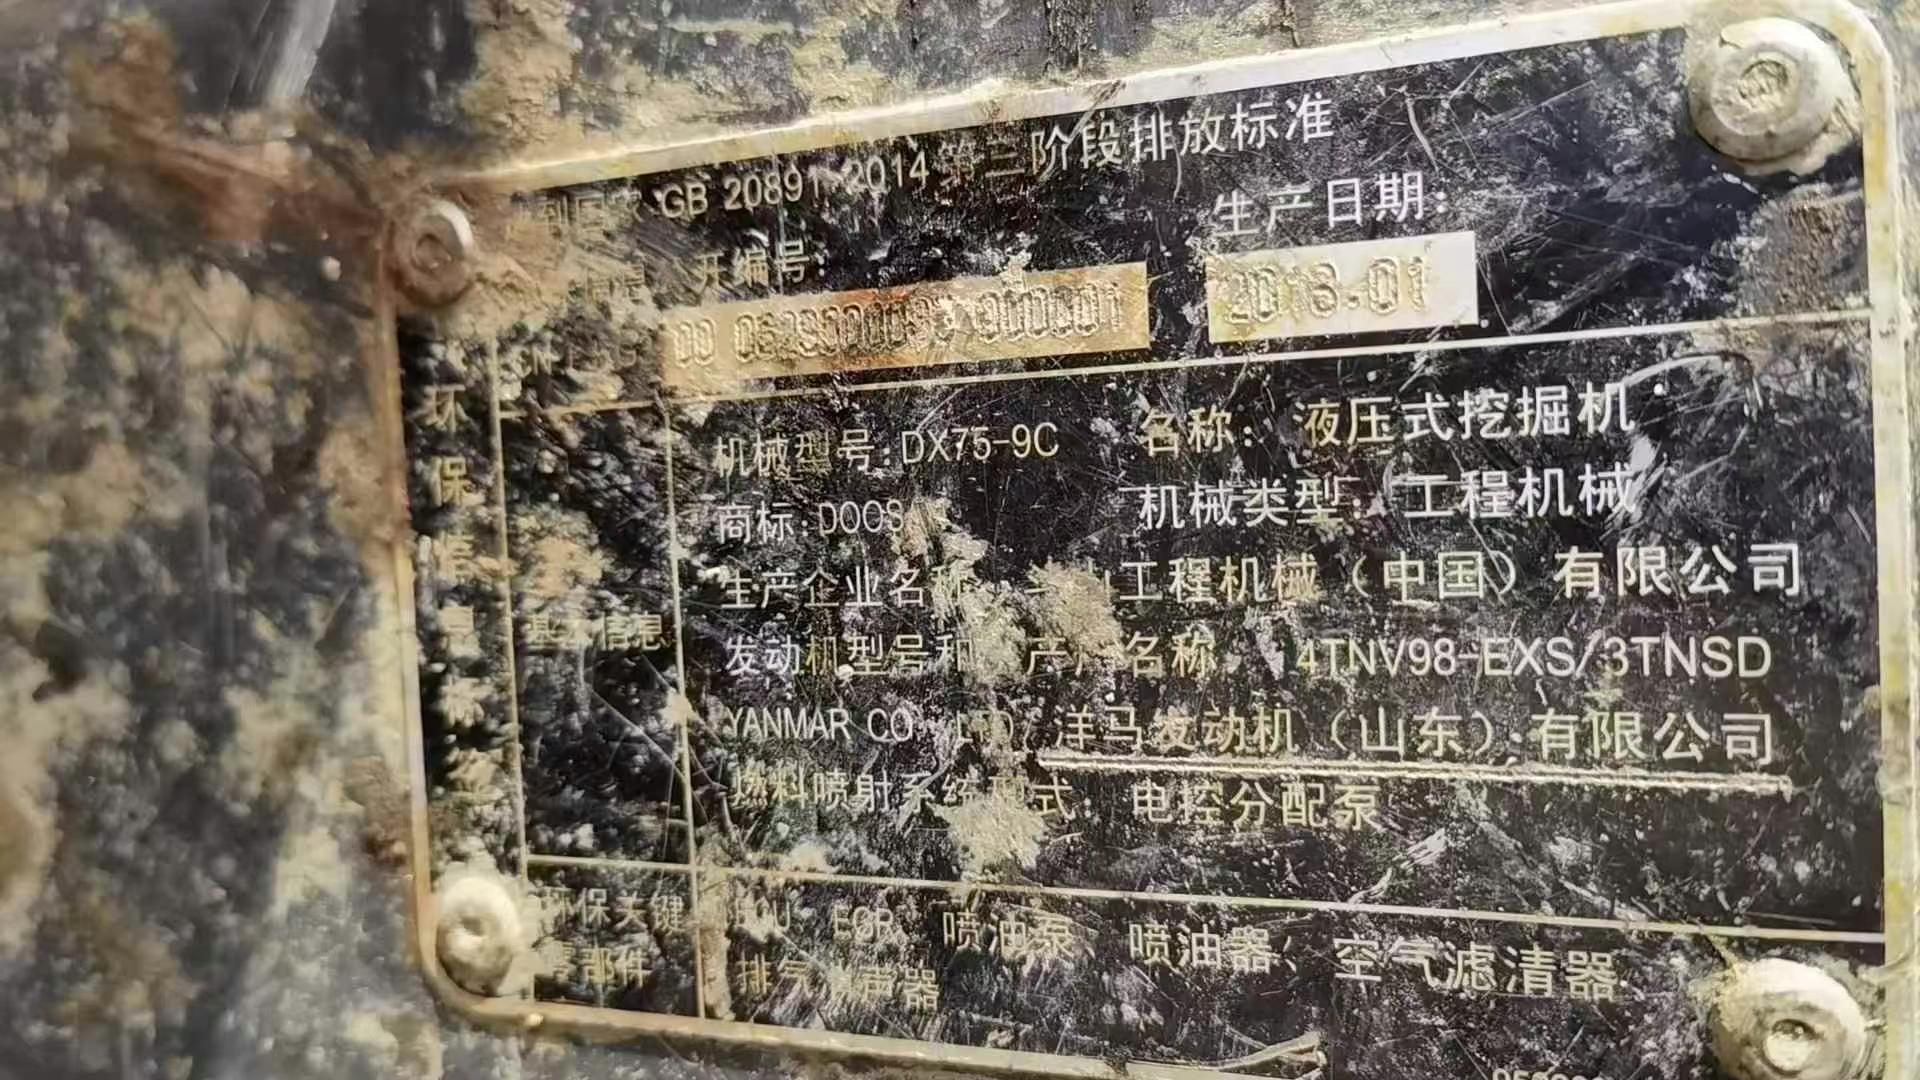 GB 20891-2014 第三阶段排放标准
信息 开编号:
生产日期:
2018.01
环保信息标签
机械型号:DX75-9C 名称: 液压式挖掘机
商标:DOOS 机械类型: 工程机械
生产企业名称 工程机械（中国）有限公司
基本信息
发动机型号和 产 名称 4TNV98-EXS/3TNSD
YANMAR CO LTD/洋马发动机（山东）有限公司
燃料喷射系统型式: 电控分配泵
环保关键 ECU EGR 喷油泵、喷油器、空气滤清器
零部件 排气消声器